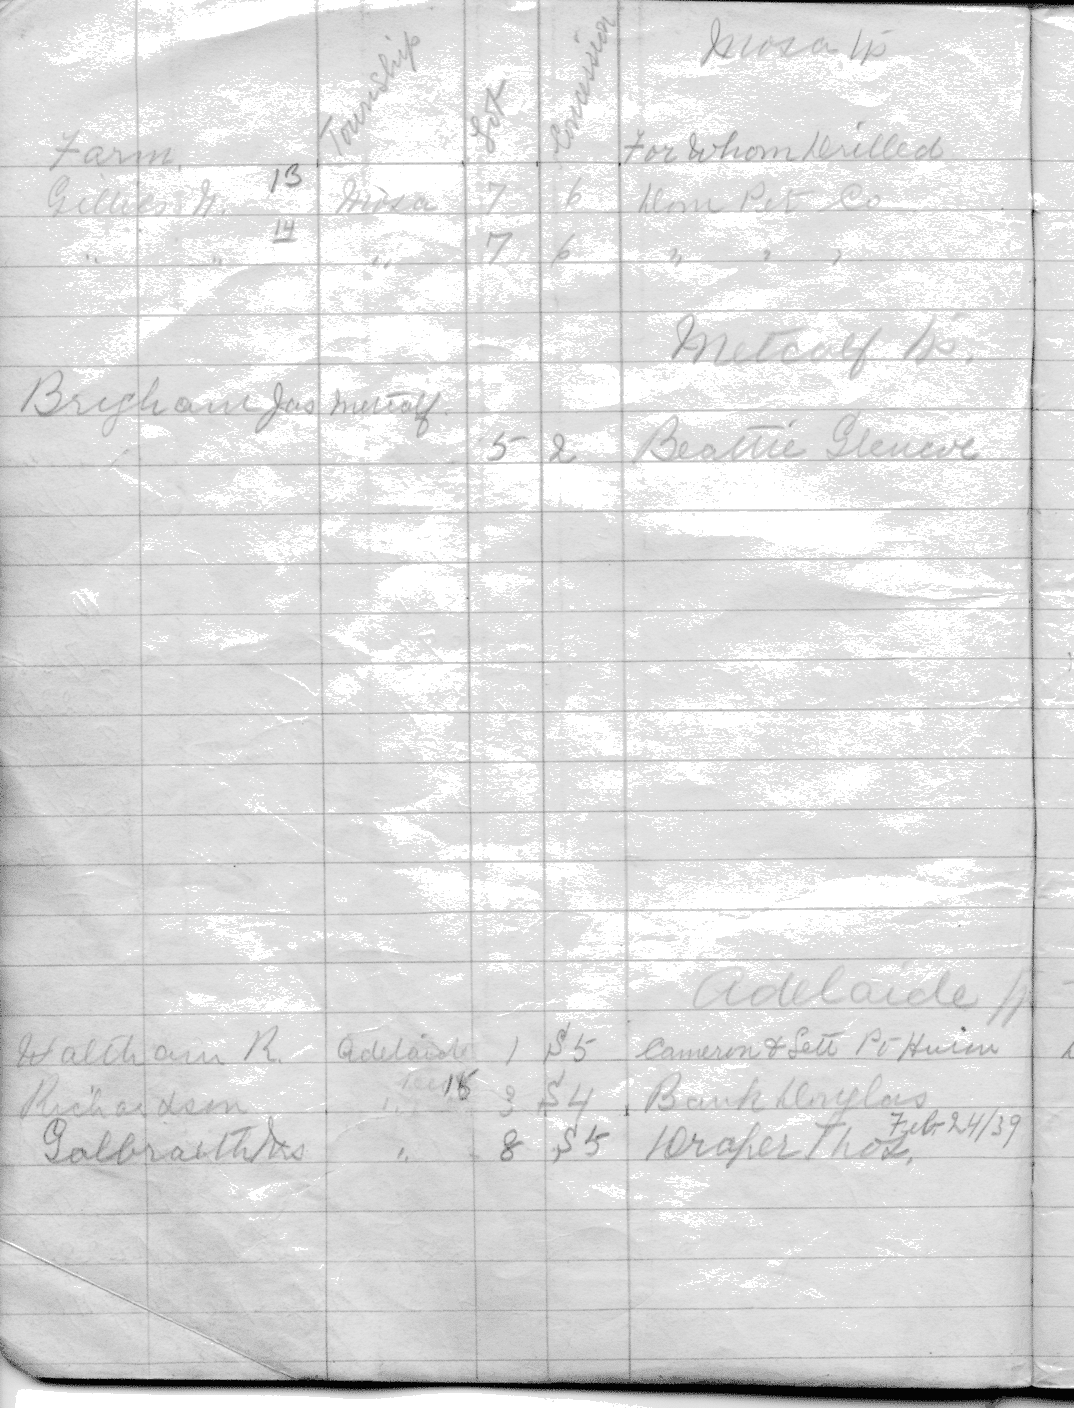 Mosa Tp
Farm Township Lot Concession For Whom Drilled
Gillies N. 13 Mosa 7 6 Dom Pet Co
" " 14 " 7 6 " " "
Metcalf Tp.
Brigham Jas Metcalf.
5 2 Beattie Glencoe
Adelaide Tp
Waltham R. Adelaide 1 S 5 Cameron & Pt Huron
Richardson " 15 3 S 4 Bank Douglas
Feb 24/39
Galbraith Mrs " 8 S 5 Draper Thos.